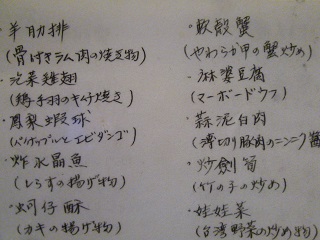 ・羊肋排
(骨付きラム肉の焼き物)
・泡菜雞翅
(鶏手羽のキムチ焼き)
・鳳梨蝦球
(パイナップルとエビダンゴ)
・炸水晶魚
(しらすの揚げ物)
・蚵仔酥
(カキの揚げ物)
・軟殻蟹
(やわらか甲の蟹炒め)
・麻婆豆腐
(マーボードウフ)
・蒜泥白肉
(薄切り豚肉のニンニク醤
・炒劍筍
(竹の子の炒め)
・娃娃菜
(台湾野菜の炒め物)